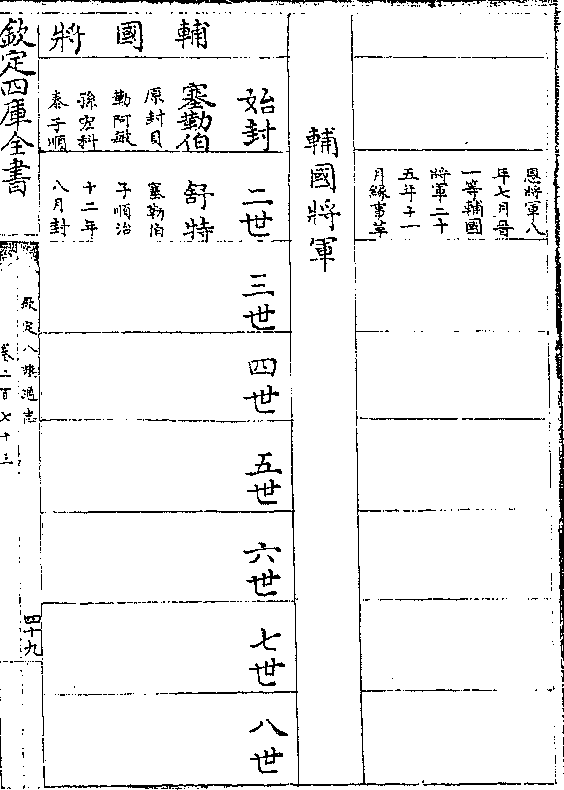 恩將軍八
年七月晉
一等輔國
將軍二十
五年十一
月緣事革
輔國將軍
始封
二世
三世
四世
五世
六世
七世
八世
輔國將
塞勒伯
原封貝
勒阿敏
孫宏科
泰子順
舒特
塞勒伯
子順治
十二年
八月封
欽定四庫全書
欽定八旗通志
卷二百七十三
四十九